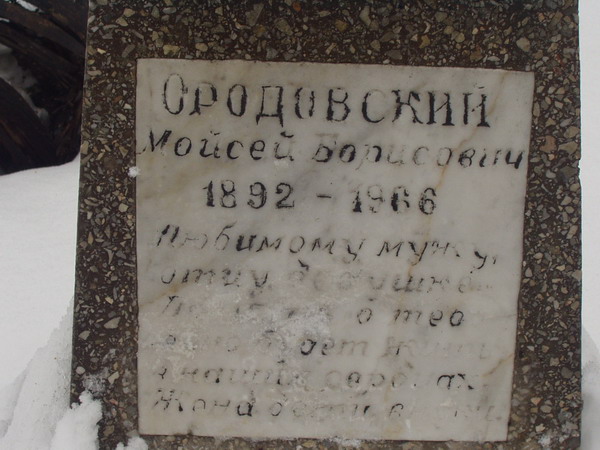 ОРОДОВСКИЙ
Мойсей Борисович
1892 - 1966
Любимому мужу,
отцу, дедушке
о тебе
будет жить
в наших сердцах
Жена дети внуки